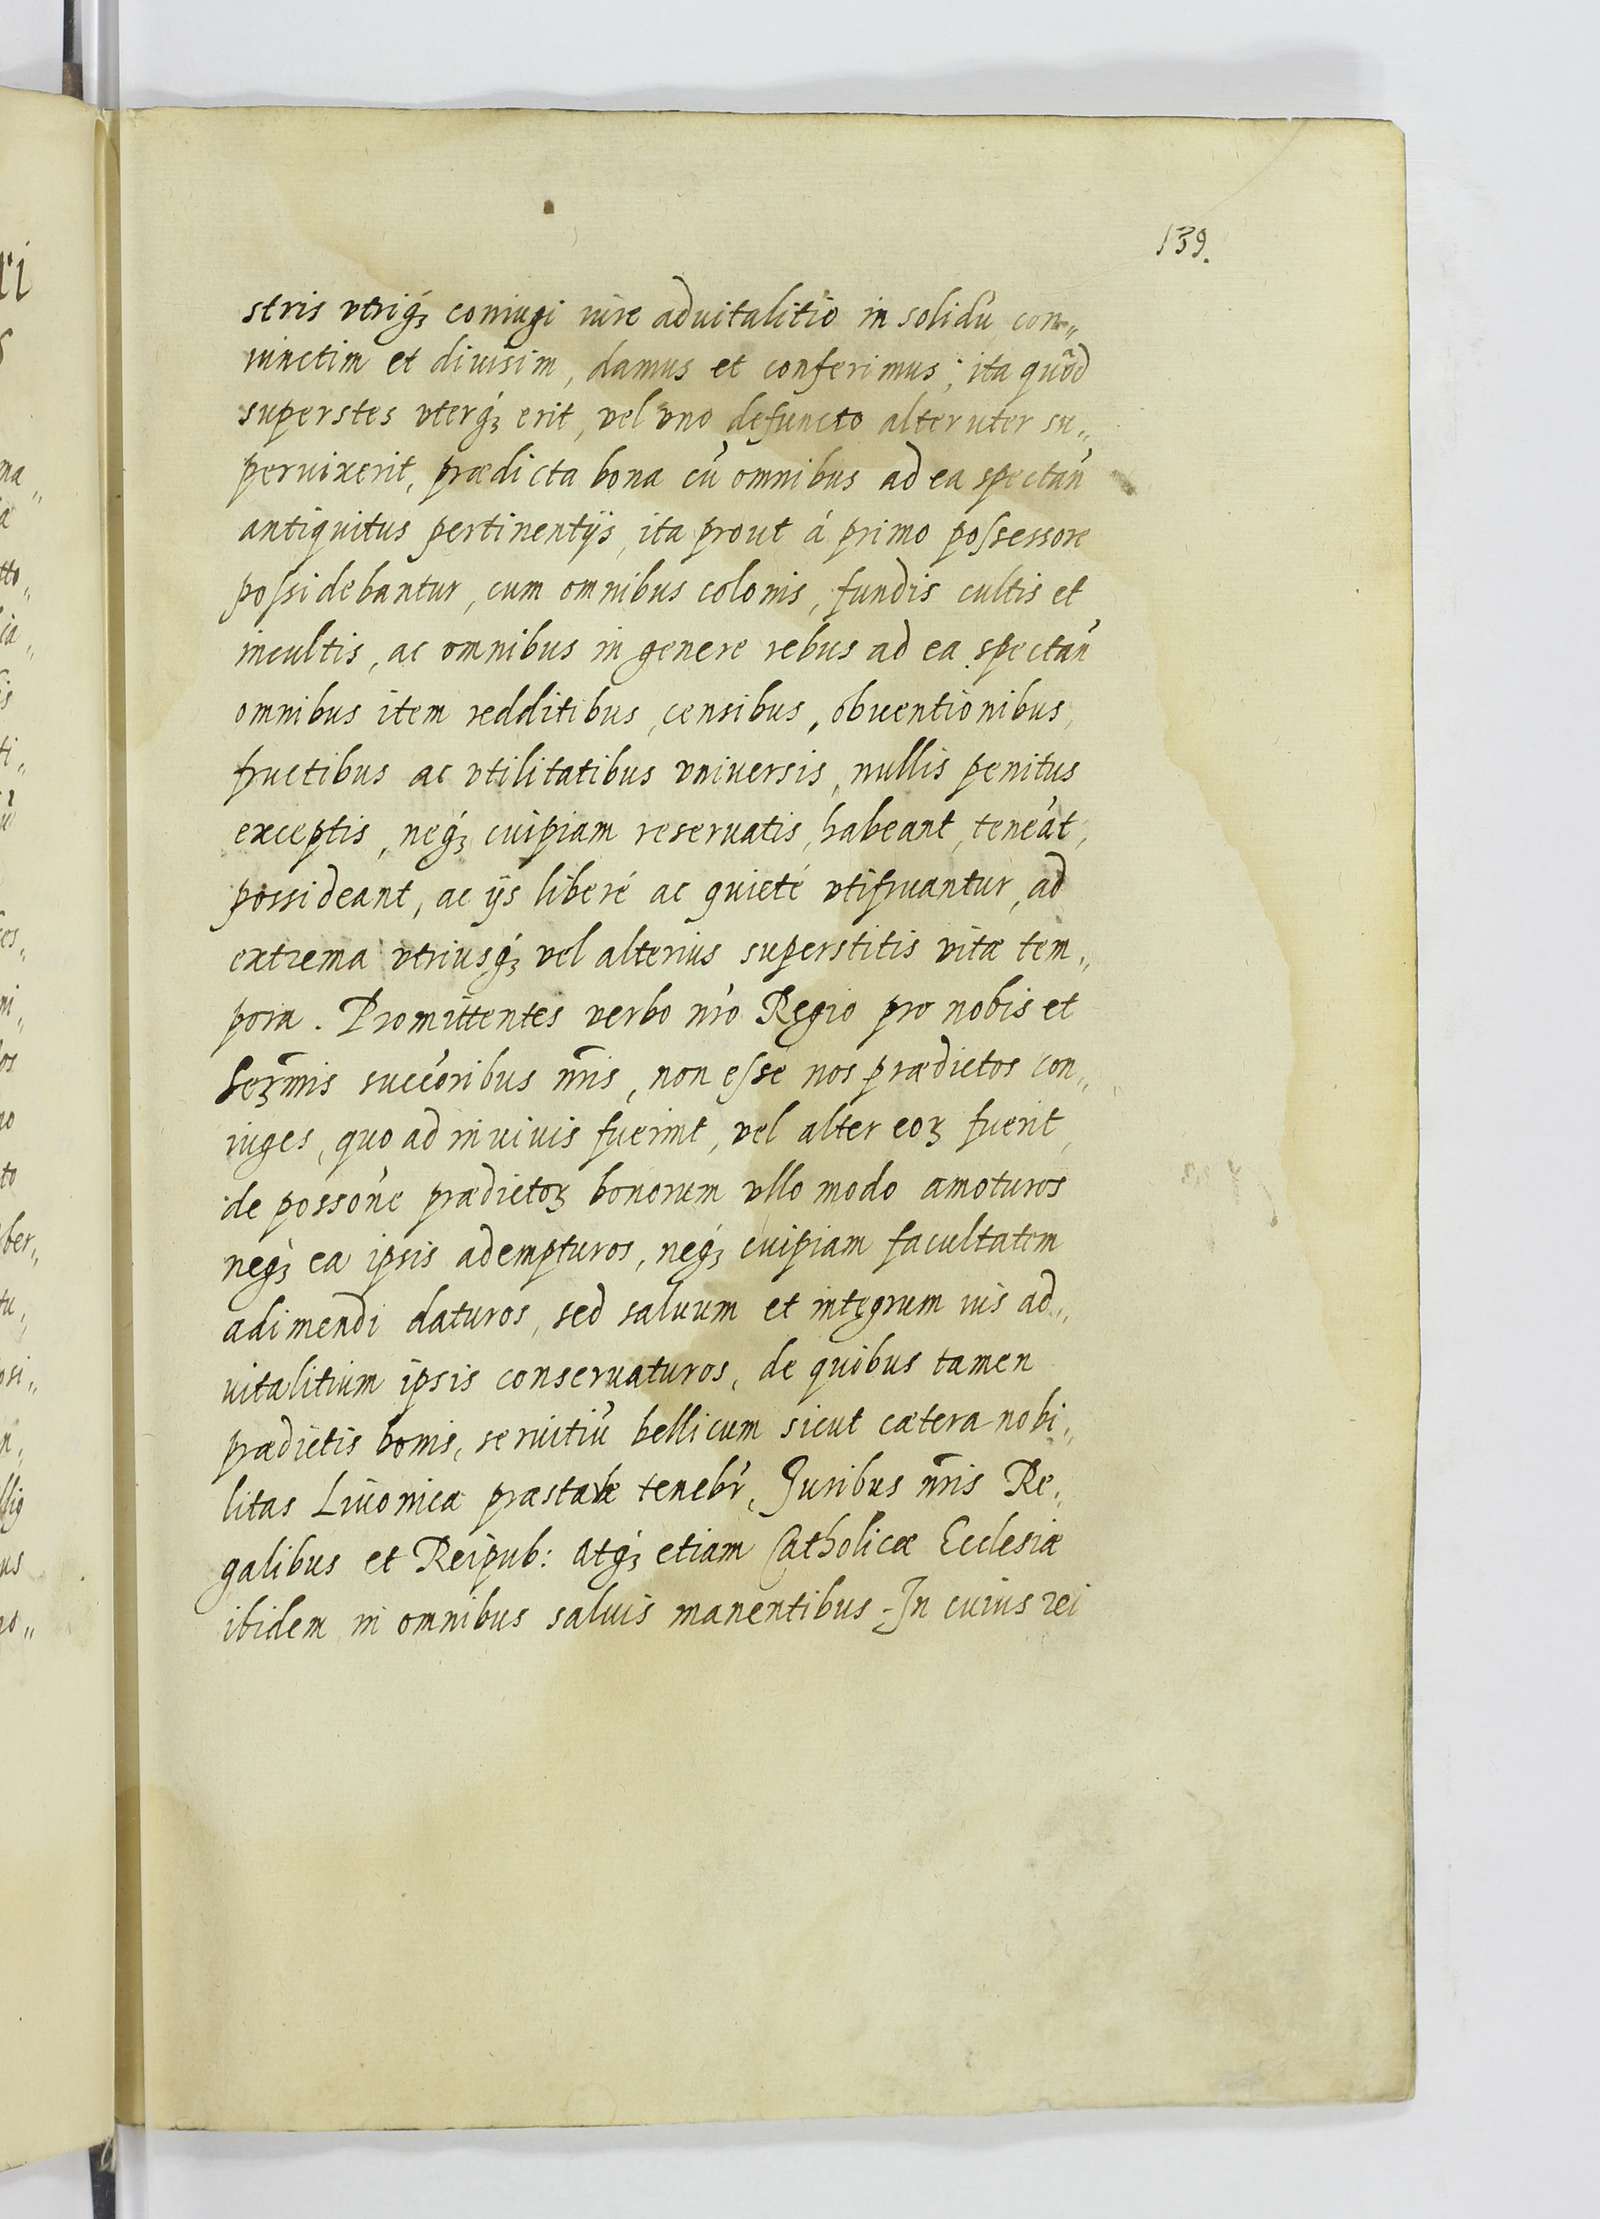 139.
stris vtriq́ꝫ coniugi iure aduitalitio in solidũ, con„
iunctim et diuisim, damus et conferimus; ita quõd
superstes vterq́ꝫ erit, vel vno defuncto alteruter su„
peruixerit, prædicta bona cũ omnibus ad ea spectañ
antiquitus pertinentijs, ita prout á primo poſsessore
poſsidebantur, cum omnibus colonis, fundis cultis et
incultis, ac omnibus in genere rebus ad ea spectañ
omnibus item redditibus, censibus, obuentionibus,
fructibus ac vtilitatibus vniuersis, nullis penitus
exceptis, neq́ꝫ cuipiam reseruatis, habeant, teneãt,
possideant, ac ijs liberé ac quieté vtifruantur, ad
extrema vtriusq́ꝫ vel alterius superstitis vitæ tem„
pora. Promittentes verbo nr̃o Regio pro nobis et
Serm̃is succõribus nr̃is, non eſse nos prædictos con„
iuges, quo ad in viuis fuerint, vel alter eoꝝ fuerit,
de possõne prædictoꝝ bonorum vllo modo amoturos
neq́ꝫ ea ipsis adempturos, neq́ꝫ cuipiam facultatem
adimendi daturos, sed saluum et integrum ius ad„
vitalitium ipsis conseruaturos, de quibus tamen
prædictis bonis, seruitiũ bellicum sicut cætera nobi„
litas Liuonica præstare tenebr̃, Juribus nr̃is Re„
galibus et Reipub: atq́ꝫ etiam Catholicæ Ecclesiæ
ibidem in omnibus saluis manentibus. In cuius rei